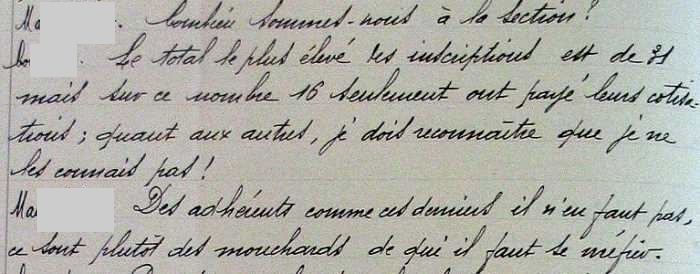 Ma . Combien sommes-nous à la section?
bo . Le total le plus élevé des inscriptions est de 31
mais sur ce nombre 16 seulement ont payé leurs cotisa-
tions; quant aux autres, je dois reconnaître que je ne
les connais pas!
Ma Des adhérents comme ces derniers il n'en faut pas,
ce sont plutôt des mouchards de qui il faut se méfier.